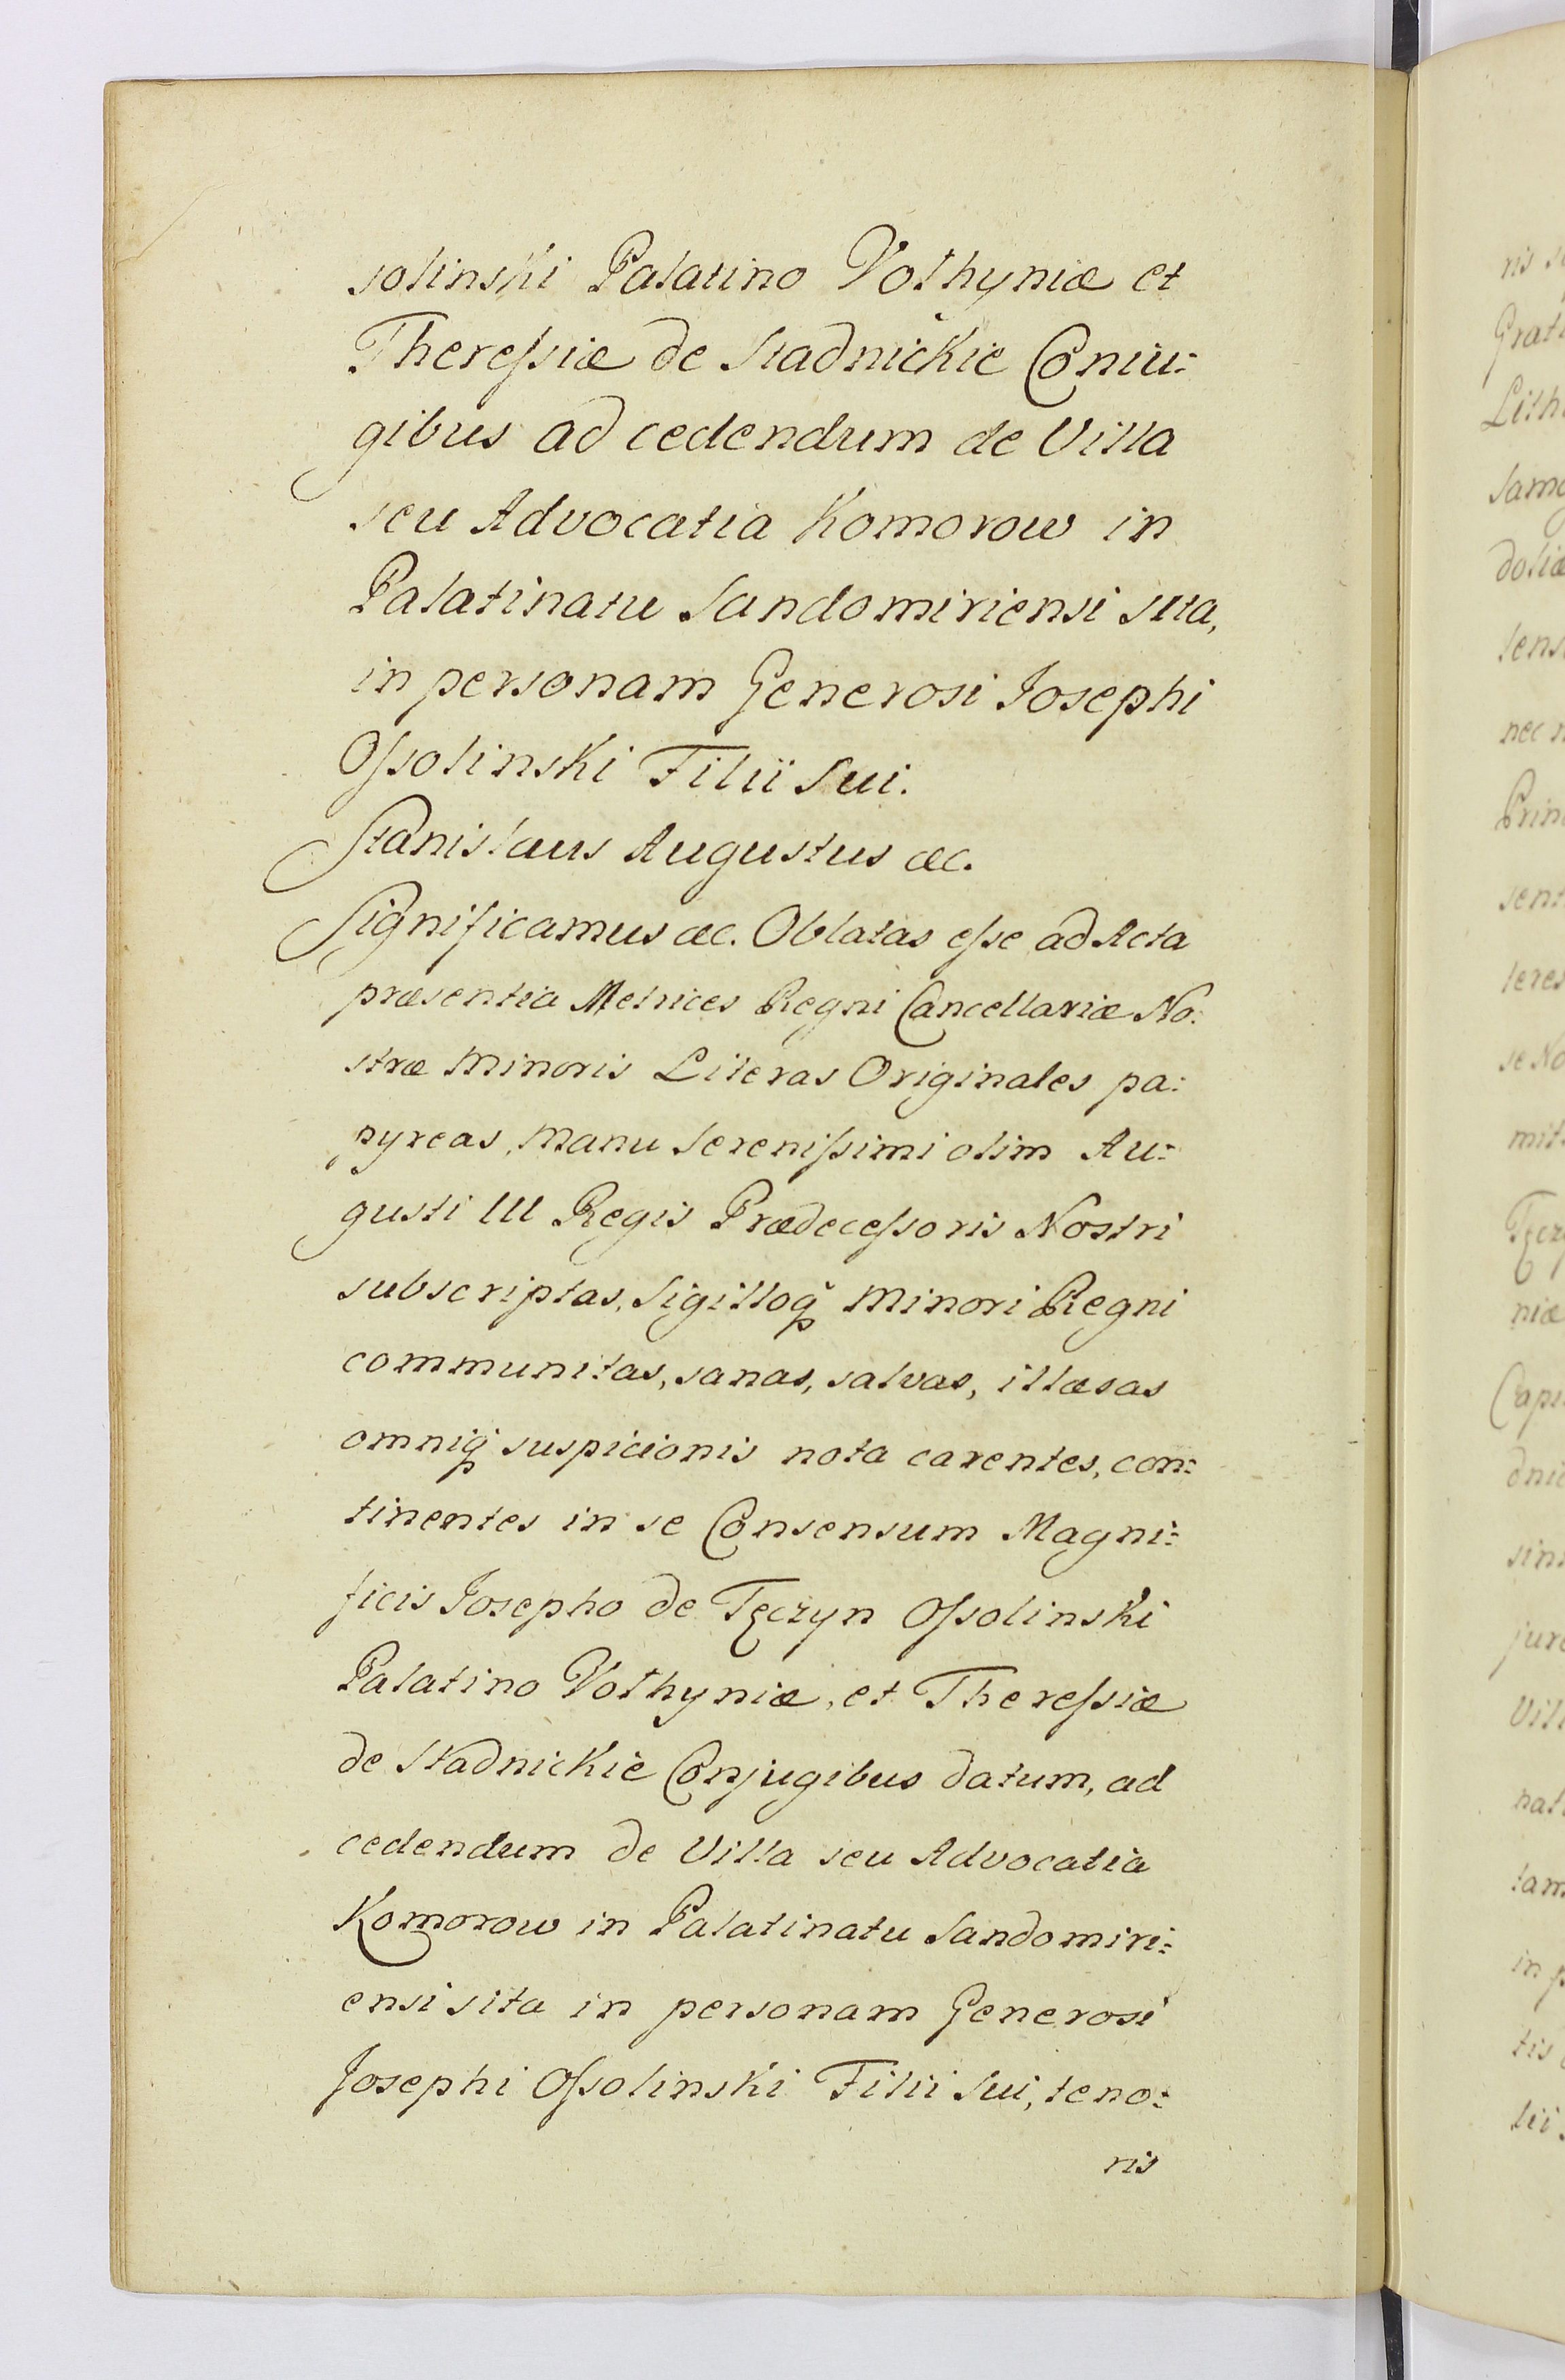 solinski Palatino Volhyniæ et
Theressiæ de Stadnickie Coniu=
gibus ad cedendum de Villa
seu Advocatia Komorow in
Palatinatu Sandomiriensi sita,
in personam Generosi Josephi
Ossolinski Filii Sui.
Stanislaus Augustus &c.
Significamus &c. Oblatas esse ad Acta
præsentia Metrices Regni Cancellariæ No:
stræ Minoris Literas Originales pa:
pyreas, Manu Serenissimi olim Au=
gusti III Regis Prædecessoris Nostri
subscriptas, Sigilloq̃ Minori Regni
communitas, sanas, salvas, illæsas
omniq̃ suspicionis nota carentes, con=
tinentes in se Consensum Magni=
ficis Josepho de Tęczyn Ossolinski
Palatino Volhyniæ, et Theressiæ
de Stadnickie Conjugibus datum, ad
cedendum de Villa seu Advocatia
Komorow in Palatinatu Sandomiri=
ensi sita in personam Generosi
Josephi Ossolinski Filii Sui, teno=
ris